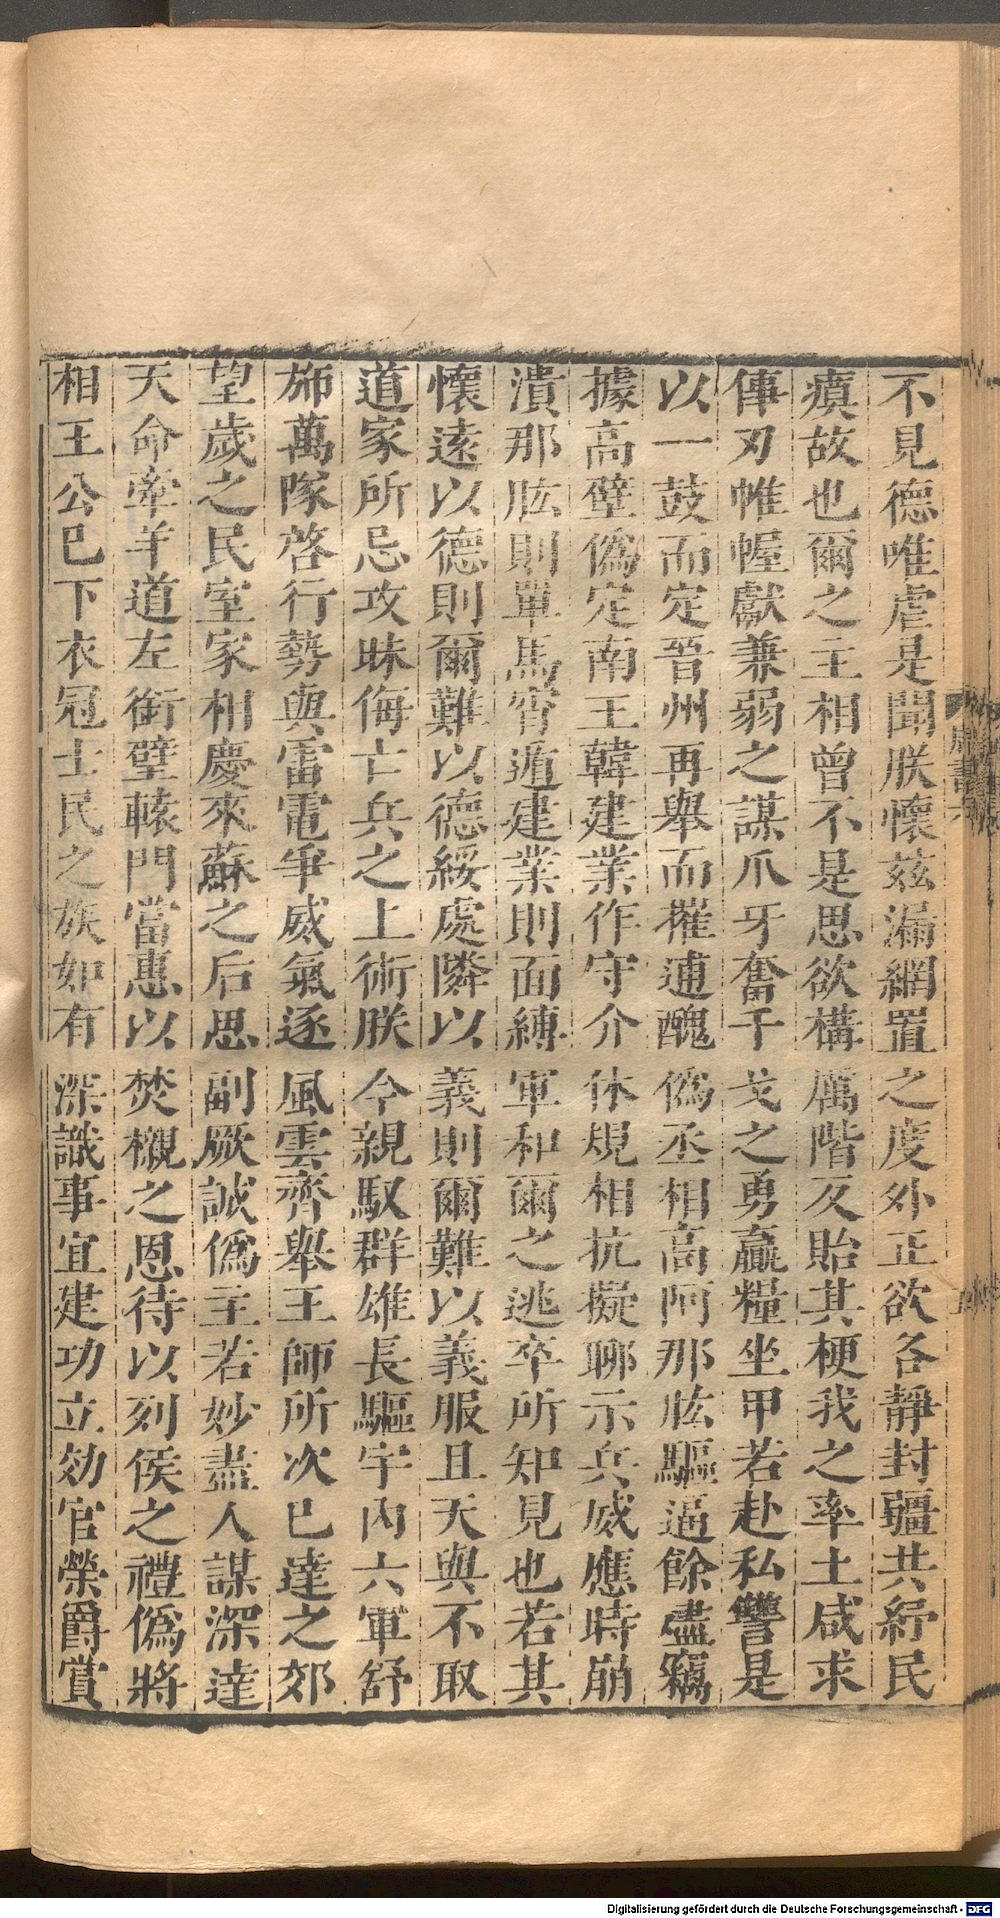 不見德唯虐是聞朕懷茲漏網置之度外正欲各靜封疆共紓民
瘼故也爾之主相曾不是思欲構厲階反貽其梗我之率土咸求
倳刃帷幄獻兼弱之謀爪牙奮干戈之勇贏糧坐甲若赴私讐是
以一鼓而定晉州再舉而摧逋醜僞丞相高阿那肱驅逼餘燼竊
據高壁僞定南王韓建業作守介休規相抗擬聊示兵威應時崩
潰那肱則單馬宵遁建業則面縛軍和爾之逃卒所知見也若其
懷遠以德則爾難以德綏處隣以義則爾難以義服且天與不取
道家所忌攻昧侮亡兵之上術朕今親馭群雄長驅宇內六軍舒
斾萬隊啓行勢與雷電爭威氣逐風雲齊舉王師所次已達之郊
望歲之民室家相慶來蘇之后思副厥誠僞主若妙盡人謀深達
天命牽羊道左銜璧轅門當惠以焚櫬之恩待以列侯之禮僞將
相王公已下衣冠士民之族如有深識事宜建功立効官榮爵賞
Digitalisierung gefördert durch die Deutsche Forschungsgemeinschaft - DFG